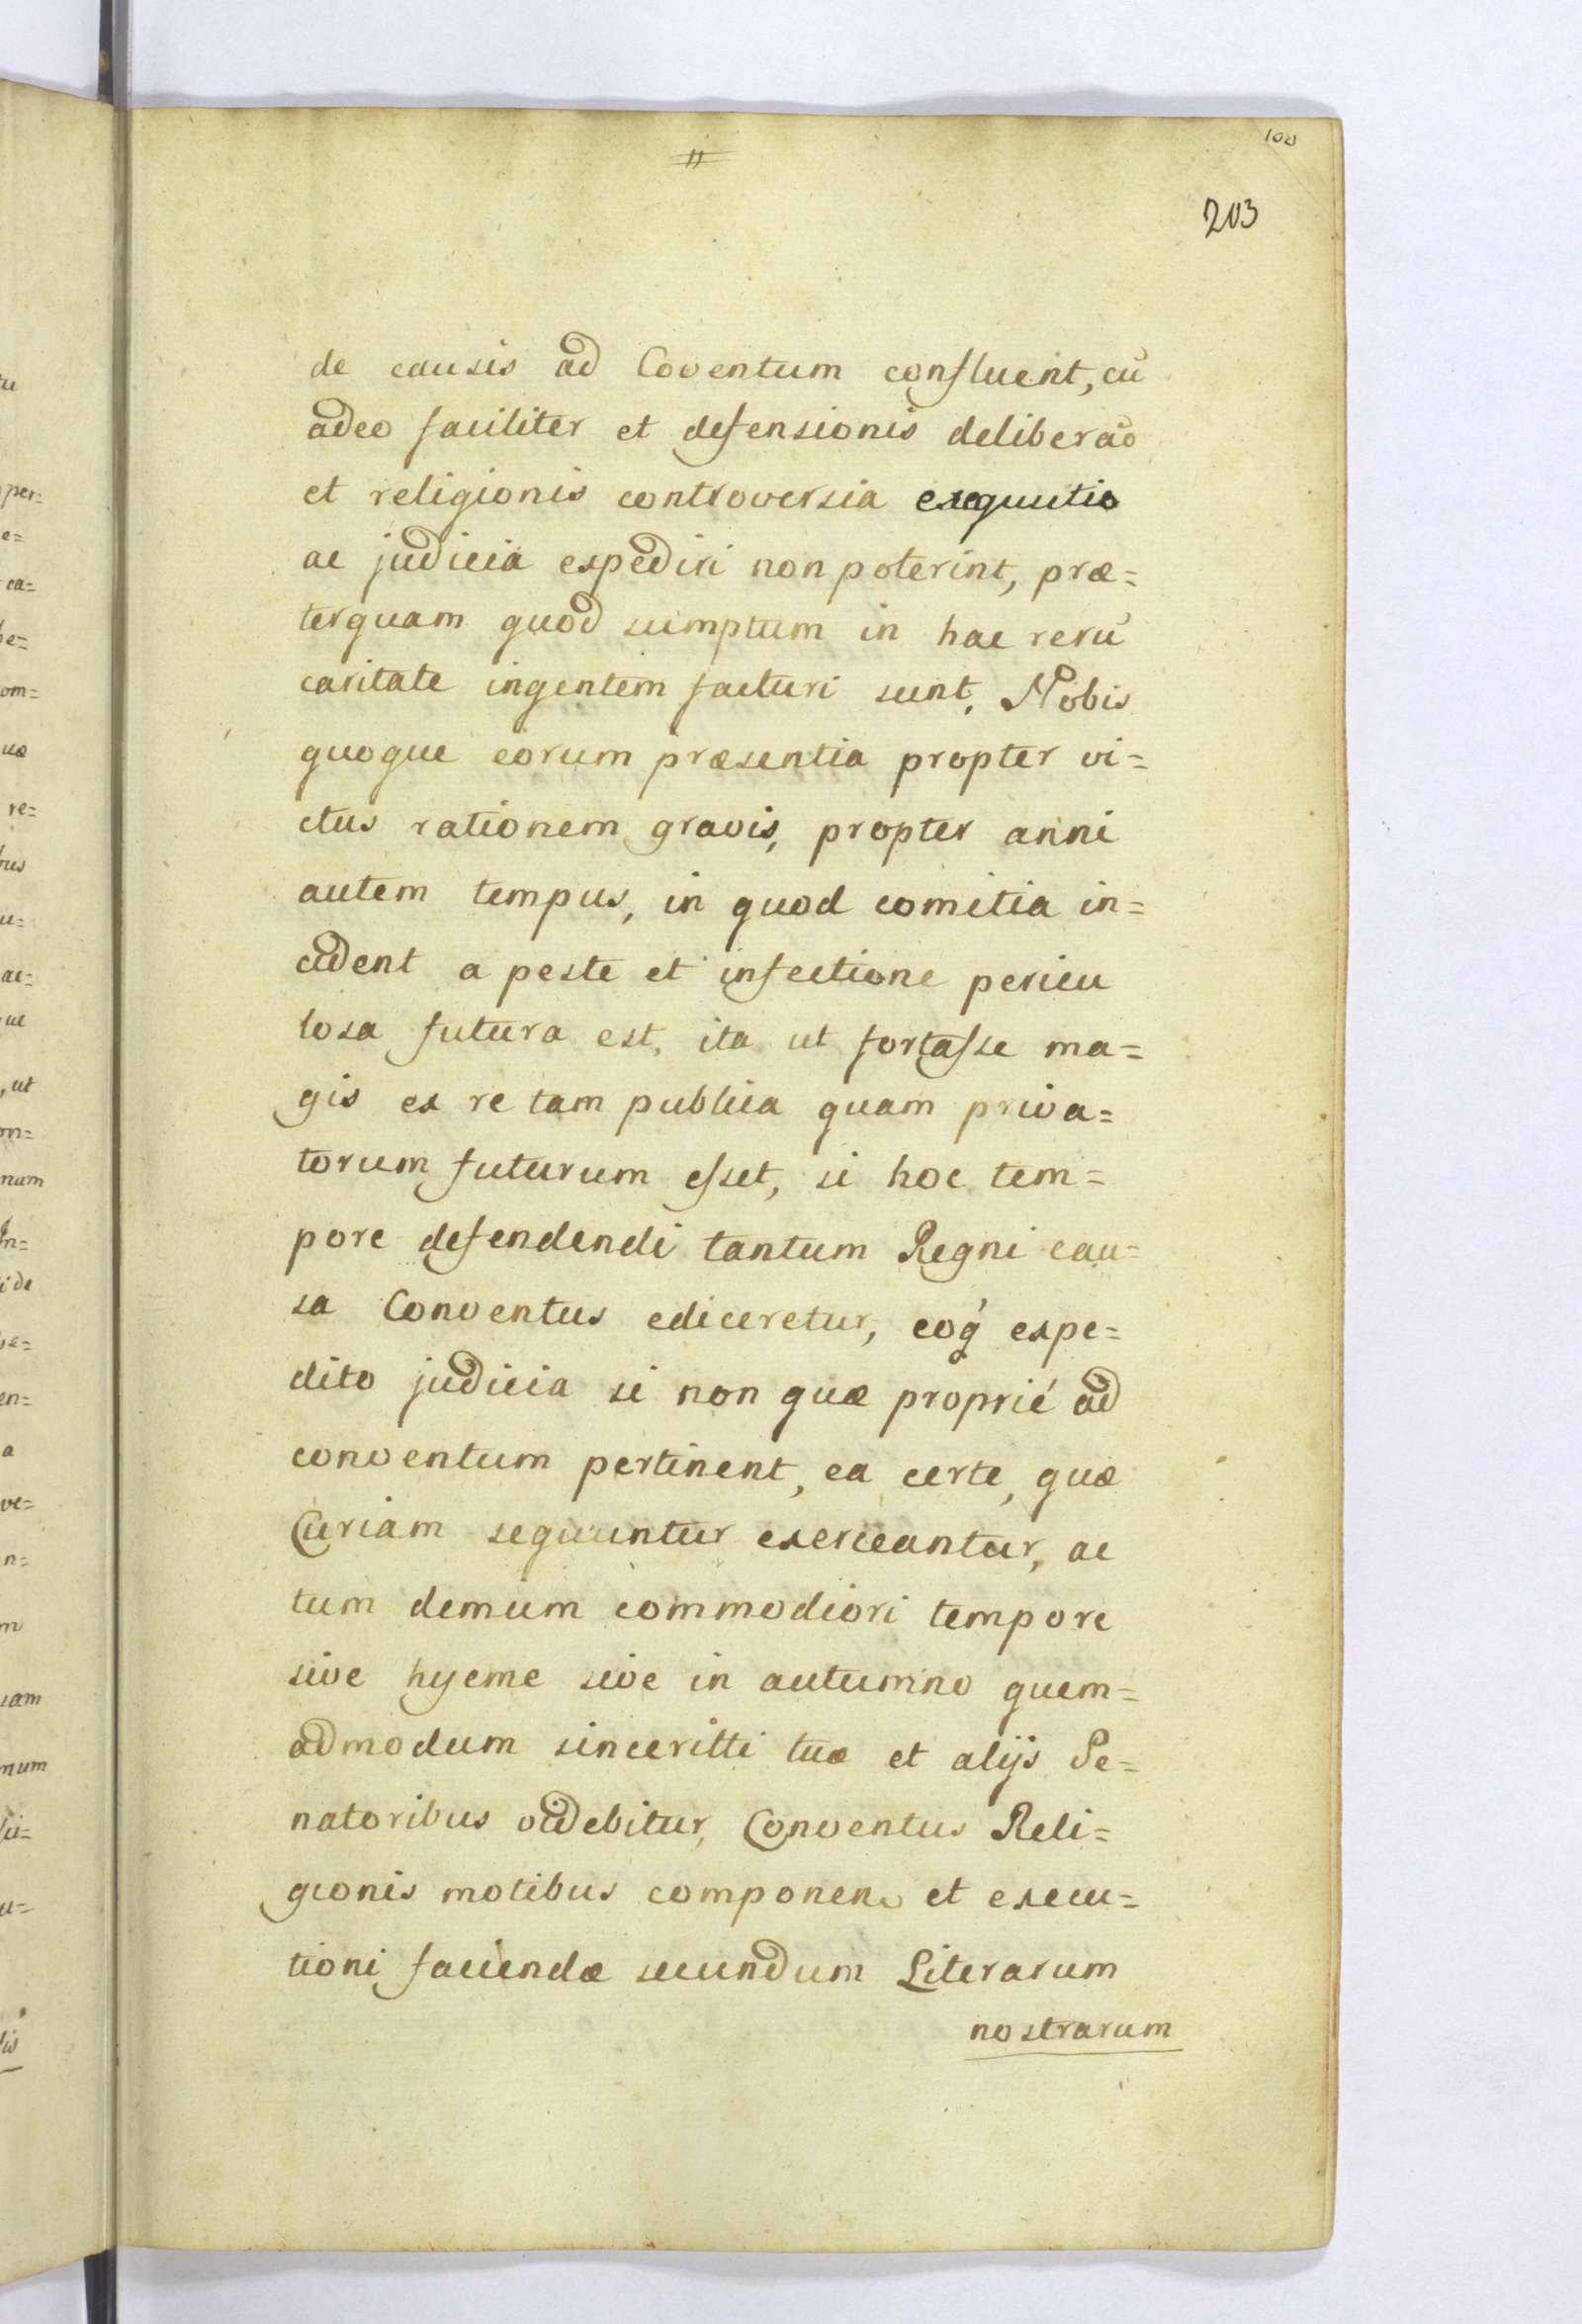 108
203
de causis ad Coventum confluent, cũ
adeo faciliter et defensionis deliberaõ
et religionis controversia exequutio
ac judicia expediri non poterint, præ=
terquam quod sumptum in hac rerũ
caritate ingentem facturi sunt. Nobis
quoque eorum præsentia propter vi=
ctus rationem gravis, propter anni
autem tempus, in quod comitia in=
cident a peste et infectione pericu
losa futura est, ita ut fortasse ma=
gis ex re tam publica quam priva=
torum futurum esset, si hoc tem=
pore defendendi tantum Regni cau=
sa Conventus ediceretur, eoq́ expe=
dito judicia si non quæ proprié ad
conventum pertinent, ea certe, quæ
Curiam sequuntur exerceantur, ac
tum demum commodiori tempore
sive hyeme sive in autumno quem=
admodum sinceritti tuæ et alijs Se=
natoribus videbitur, Conventus Reli=
gionis motibus componen. et execu=
tioni faciendæ secundum Literarum
nostrarum